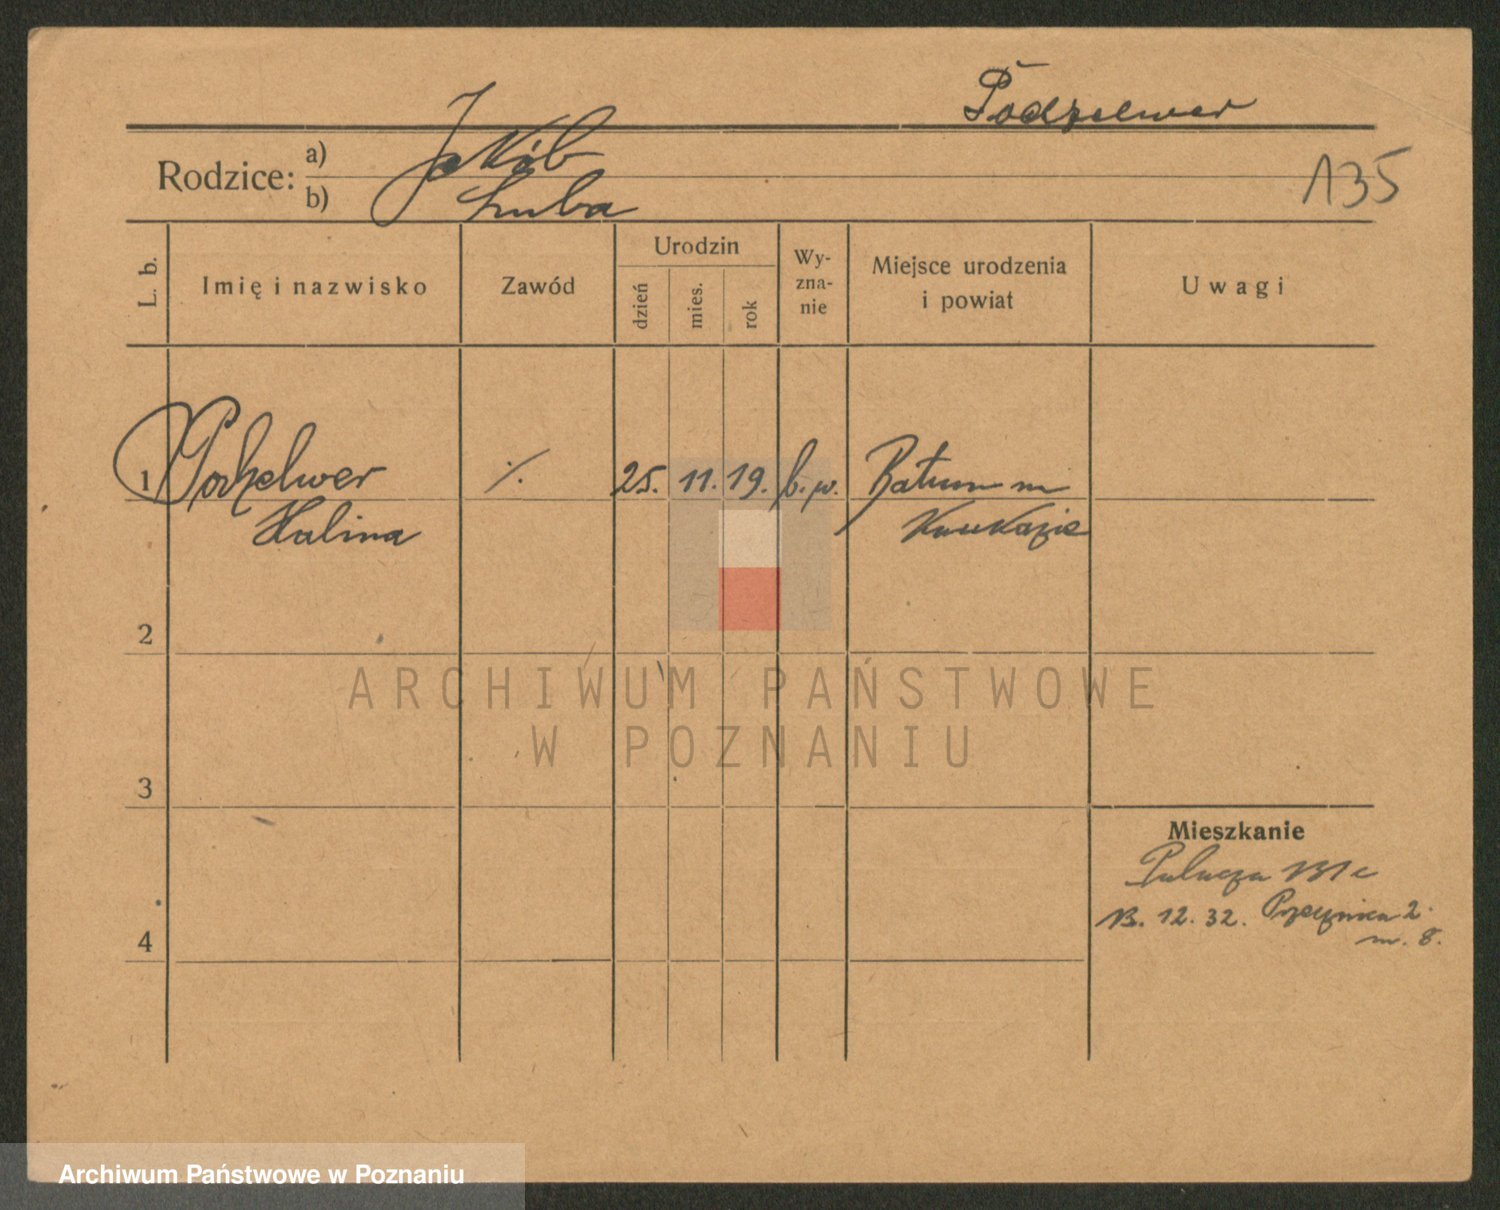 Podzelwer
Rodzice: a) Jakób
b) Luba
135
L. b. Imię i nazwisko Zawód Urodzin dzień mies. rok Wy-zna-nie Miejsce urodzenia i powiat Uwagi
1 Podzelwer ./. 25. 11. 19. b. w. Batum na
Halina Kaukazie
2
ARCHIWUM PAŃSTWOWE
W POZNANIU
3
Mieszkanie
13. 12. 32. 2.
4 m. 8.
Archiwum Państwowe w Poznaniu